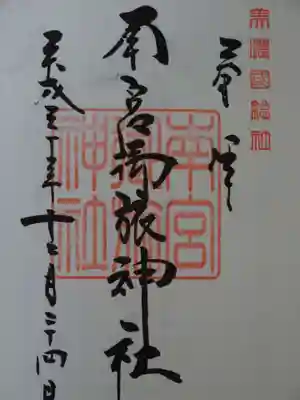 美濃國総社
奉拝
南宮御旅神社
平成二十五年十二月二十四日
南宮御旅神社